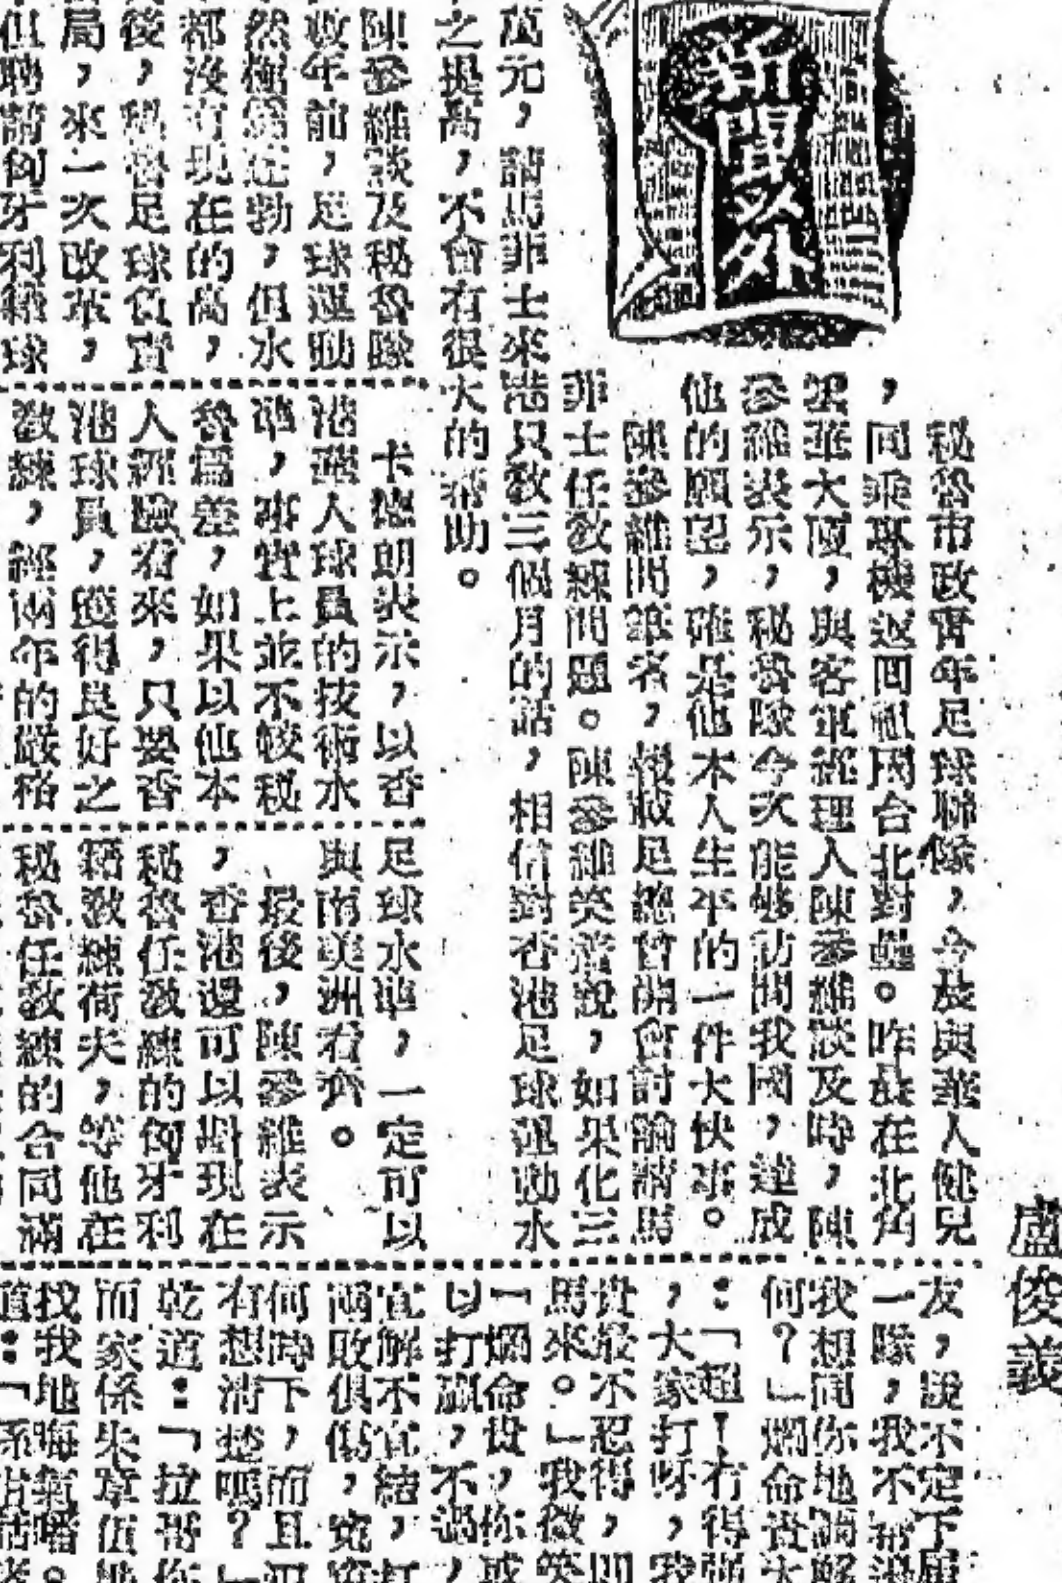 新聞以外
秘魯市政青年足球聯隊，今晨與華人健兒
，同乘專機返回祖國台北對壘。昨晨在北角
雲華大廈，與客軍經理人陳參維談及時，陳
參維表示，秘魯隊今次能够訪問我國，達成
他的願望，確是他本人生平的一件大快事。
陳參維問筆者，最近足總曾開會討論請馬
菲士任教練問題。陳參維笑着說，如果化三
萬元，請馬菲士來港只教三個月的話，相信對香港足球運動水
之提高，不會有很大的帮助。
陳參維談及秘魯隊
年前，足球運動
然極爲蓬勃，但水
都沒有現在的高，
後，秘魯足球負責
局，來一次改革，
但聘請匈牙利籍球
卡德朗表示，以香
港華人球員的技術水
準，事實上並不較秘
魯爲差，如果以他本
人經驗看來，只要香
港球員，獲得良好之
教練，經兩年的嚴格
足球水準，一定可以
與南美洲看齊。
最後，陳參維表示
，香港還可以對現在
秘魯任教練的匈牙利
籍教練荷夫，等他在
秘魯任教練的合同滿
盧俊義
友，說不定下屆
一隊，我不希望
我想同你地調解
何？」爛命貴大
：「超！冇得
，大家打呀，我
貴最不忍得，即
馬來。」我微笑
「爛命貴，你或
以打贏，不過，
宜解不宜結，打
兩敗俱傷，究竟
何時下，而且
有想清楚嗎？」
乾道：「拉哥你
而家係朱章伍
找我地晦氣嘈。
道：「係